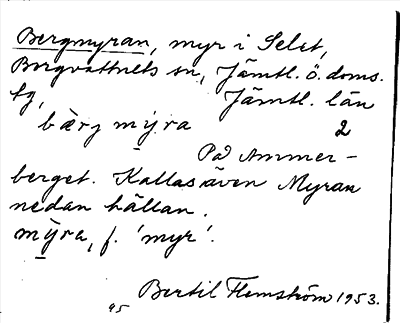 Bergmyran, myr i Selet,
Borgvattnets sn, Jämtl. ö. doms.
tg, Jämtl. län
bærj mỳra 2
På Ammer-
berget. Kallas även Myran
nedan hällan.
mỳra, f. 'myr'.
Bertil Flemström 1953.
95